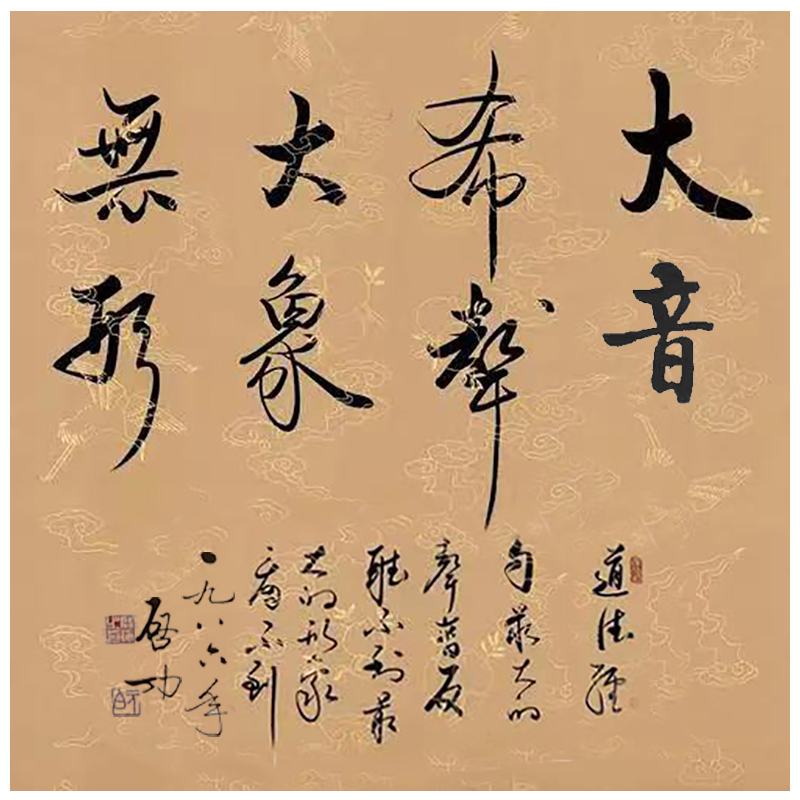 大音
希聲
大象
無形
道德經
句最大的
聲音反
聽不到最
大的形象
看不到
一九八六年
启功